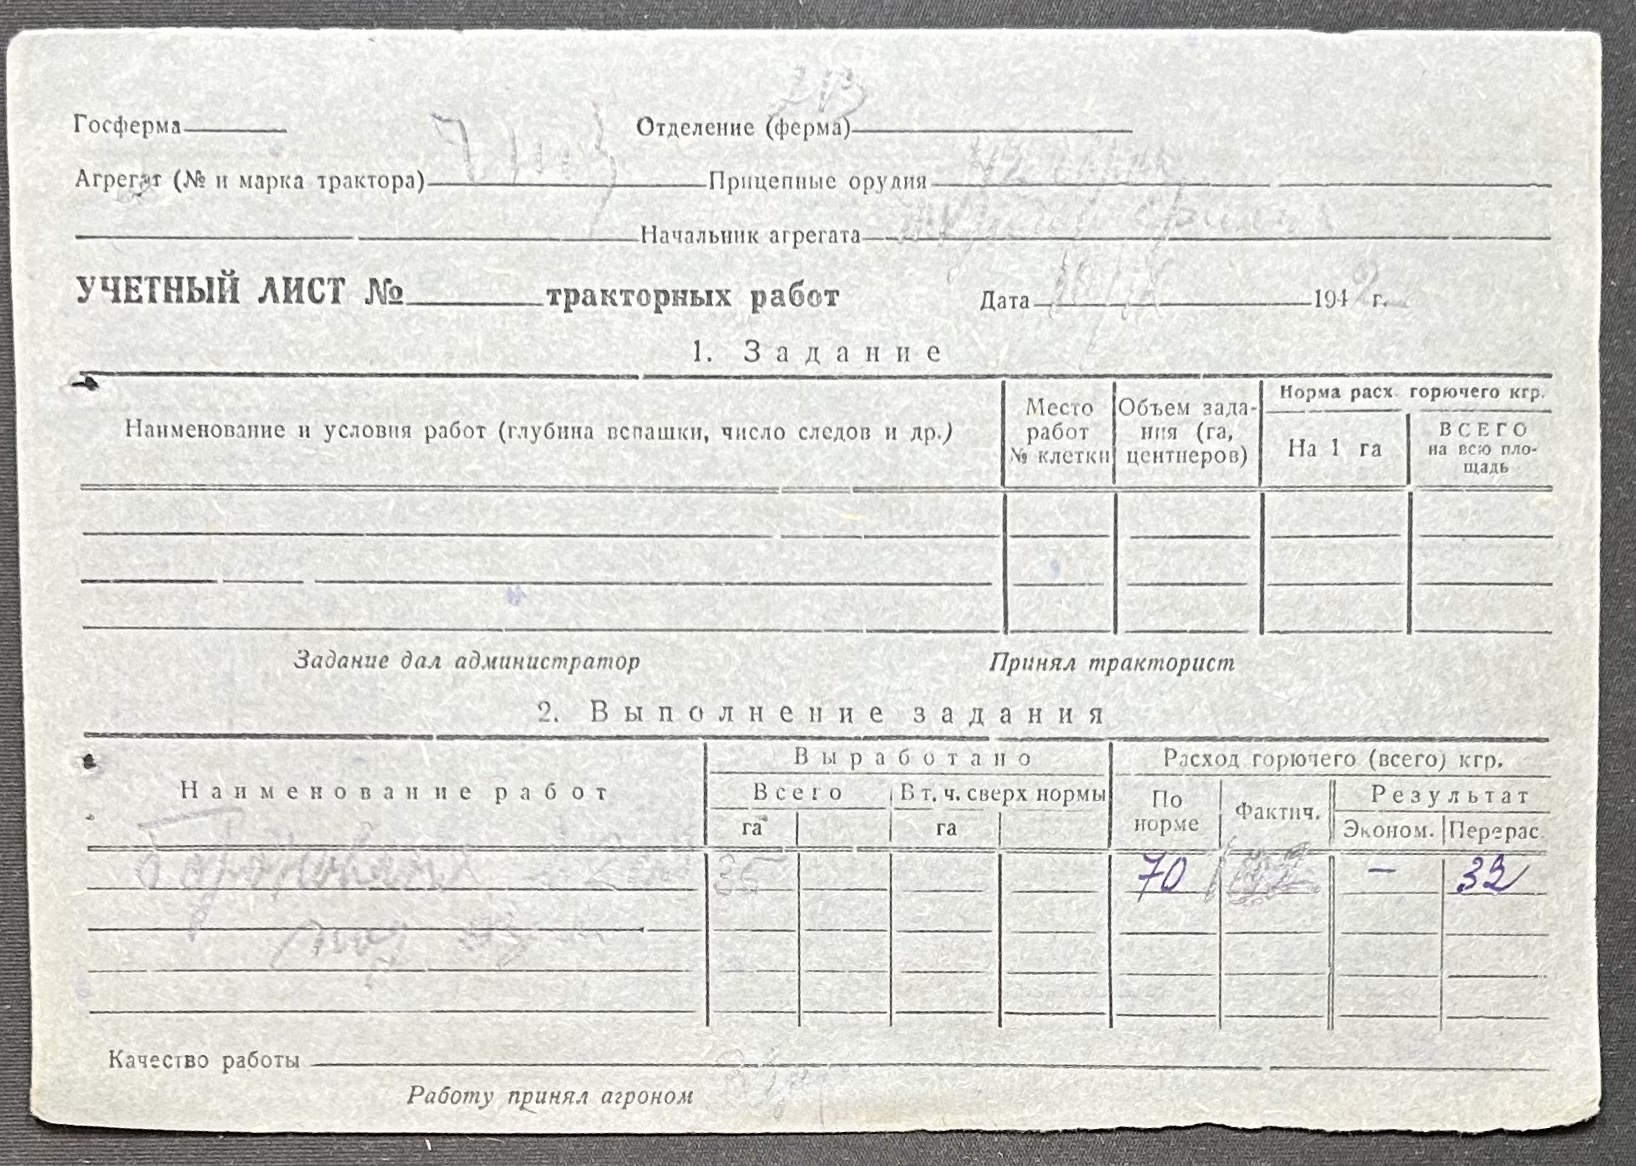 Госферма Отделение (ферма)
Агрегат (№ и марка трактора) Прицепные орудия
Начальник агрегата
УЧЕТНЫЙ ЛИСТ № тракторных работ Дата 194 2 г.
1. Задание
Наименование и условия работ (глубина вспашки, число следов и др.)
Место работ № клетки
Объем зада-
ния (га,
центнеров)
Норма расх. горючего кгр.
На 1 га
ВСЕГО
на всю пло-
щадь
Задание дал администратор Принял тракторист
2. Выполнение задания
Наименование работ
Выработано
Всего
В т. ч. сверх нормы
га га
Расход горючего (всего) кгр.
По
норме
Фактич.
Результат
Эконом. Перерас.
35 70 – 32
Качество работы
Работу принял агроном